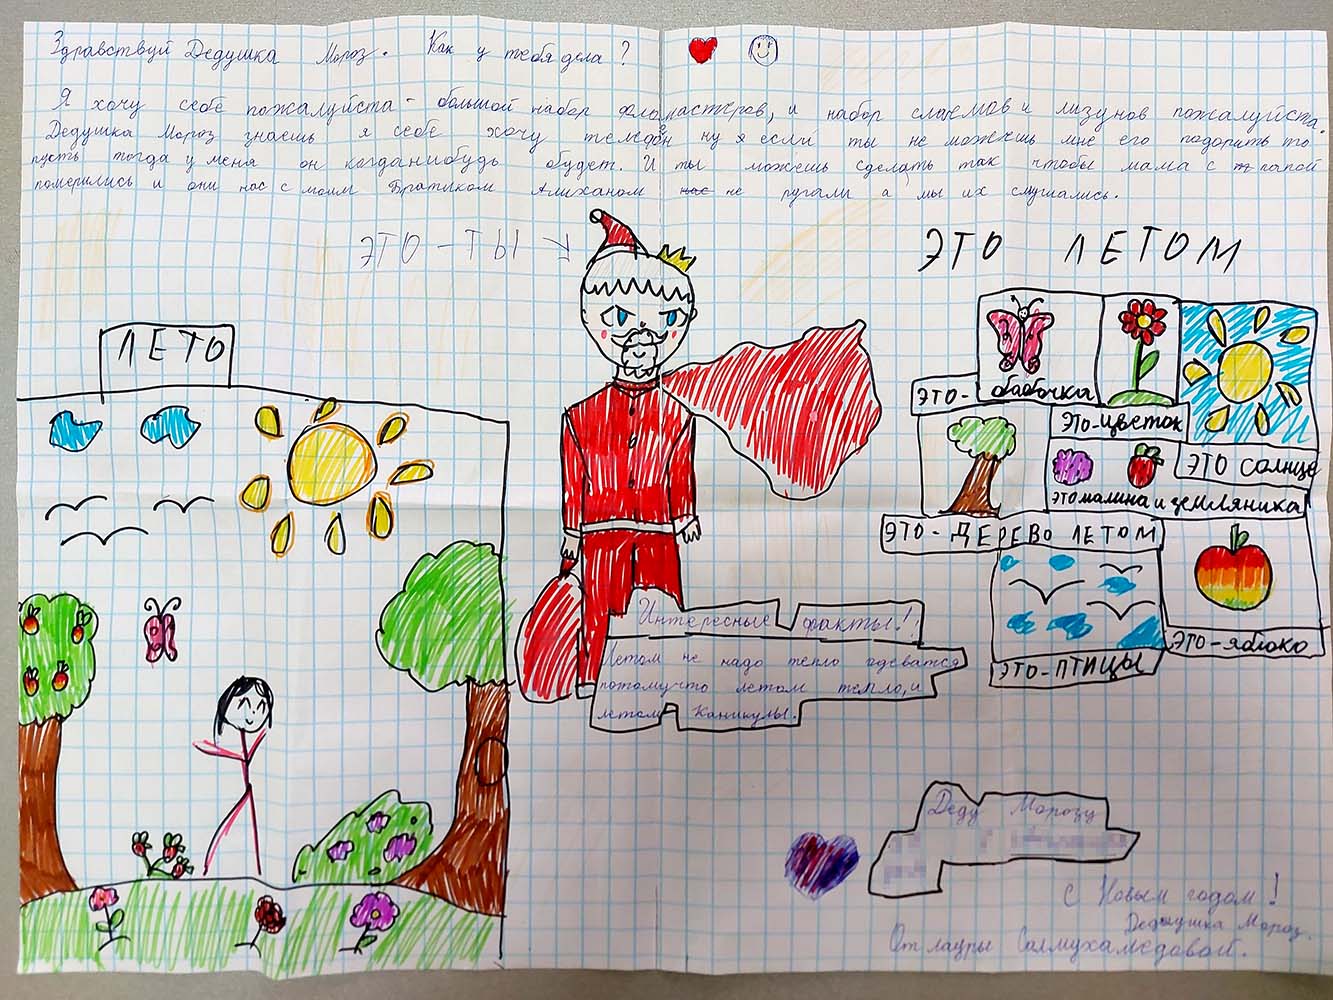 Здравствуй Дедушка Мороз. Как у тебя дела?
Я хочу себе пожалуйста - большой набор фломастеров, и набор слаемов и лизунов пожалуйста.
Дедушка Мороз знаешь я себе хочу телефон ну я если ты не можешь мне его подорить то
пусть тогда у меня он когданибудь будет. И ты можешь сделать так чтобы мама с папой
померились и они нас с моим братиком Алиханом нас не ругали а мы их слушались.
ЭТО - ТЫ
ЭТО ЛЕТОМ
ЛЕТО
ЭТО - бабочка
ЭТО-цветок
ЭТО солнце
ЭТО малина и земляника
ЭТО - ДЕРЕВО ЛЕТОМ
ЭТО-ПТИЦЫ
ЭТО-яблоко
Интересные факты!
Летом не надо тепло одеватся
потомучто летом тепло, и
летом каникулы.
Деду Морозу
С Новым годом!
Дедыушка Мороз.
От лауры Салмухамедовой.